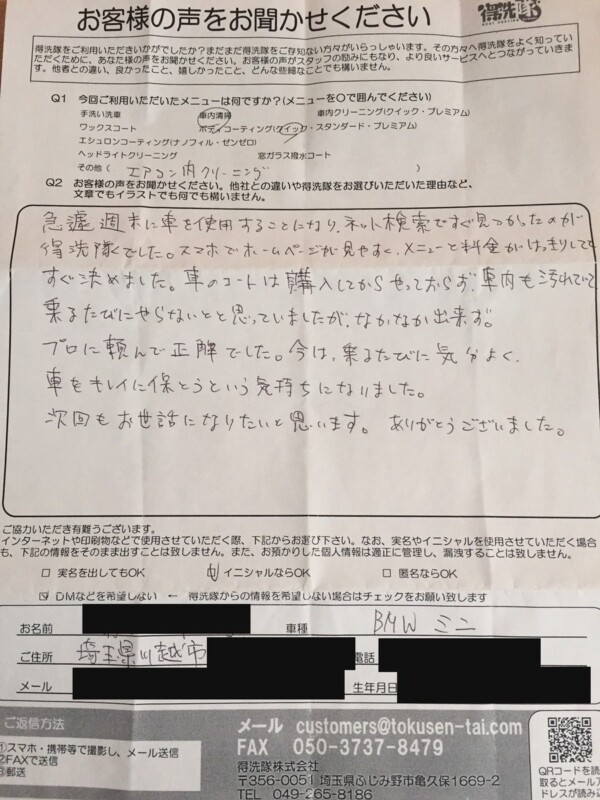 お客様の声をお聞かせください
得洗隊
得洗隊をご利用いただきいかがでしたか?まだまだ得洗隊をご存知ない方々がいらっしゃいます。その方々へ得洗隊をよく知っていただくために、あなた様の声をお聞かせください。お客様の声がスタッフの励みにもなり、より良いサービスへとつながっていきます。他者との違い、良かったこと、嬉しかったこと、どんな些細なことでも構いません。
Q1 今回ご利用いただいたメニューは何ですか?(メニューを〇で囲んでください)
手洗い洗車 車内清掃 車内クリーニング(クイック・プレミアム)
ワックスコート ボディコーティング(クイック・スタンダード・プレミアム)
エシュロンコーティング(ナノフィル・ゼンゼロ)
ヘッドライトクリーニング 窓ガラス撥水コート
その他( エアコン内クリーニング )
Q2 お客様の声をお聞かせください。他社との違いや得洗隊をお選びいただいた理由など、
文章でもイラストでも何でも構いません。
急遽週末に車を使用することになり、ネット検索ですぐ見つかったのが
得洗隊でした。スマホでホームページが見やすく、メニューと料金がはっきりしてて
すぐ決めました。車のコートは購入してからやっておらず、車内も汚れていて
乗るたびにやらないとと思っていましたが、なかなか出来ず。
プロに頼んで正解でした。今は、乗るたびに気分よく、
車をキレイに保とうという気持ちになりました。
次回もお世話になりたいと思います。 ありがとうございました。
ご協力いただき有難うございます。
インターネットや印刷物などで使用させていただく際、下記からお選び下さい。なお、実名やイニシャルを使用させていただく場合
も、下記の情報をそのまま出すことは致しません。また、お預かりした個人情報は適正に管理し、漏洩することは致しません。
□ 実名を出してもOK ☑ イニシャルならOK □ 匿名ならOK
☑ DMなどを希望しない ← 得洗隊からの情報を希望しない場合はチェックをお願い致します
お名前 車種 BMW ミニ
ご住所 埼玉県川越市 電話
メール 生年月日
ご返信方法
①スマホ・携帯等で撮影し、メール送信
②FAXで送信
③郵送
メール customers@tokusen-tai.com
FAX 050-3737-8479
得洗隊株式会社
〒356-0051 埼玉県ふじみ野市亀久保1669-2
TEL 049-265-8186
QRコードを読
取るとメールア
ドレスが読み込